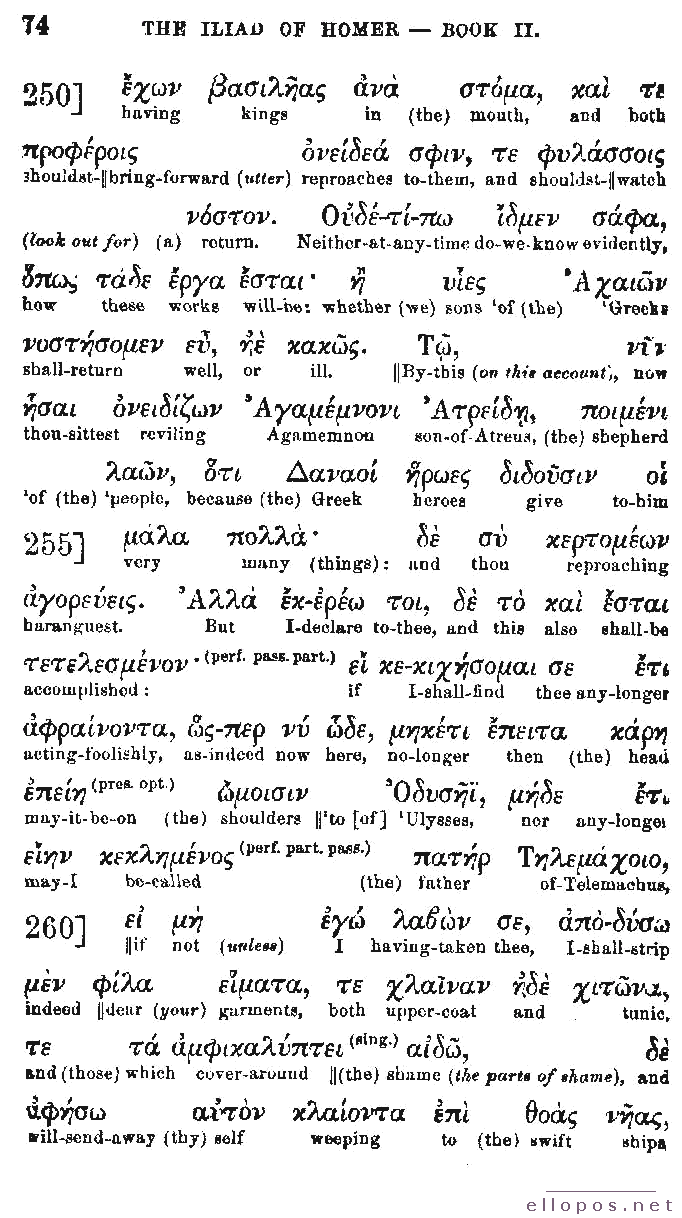 74 THE ILIAD OF HOMER — BOOK II.
250] ἔχων βασιλῆας ἀνὰ στόμα, καὶ τε
having kings in (the) mouth, and both
προφέροις ὀνείδεά σφιν, τε φυλάσσοις
shouldst-||bring-forward (utter) reproaches to-them, and shouldst-||watch
νόστον. Οὐδέ-τί-πω ἴδμεν σάφα,
(look out for) (a) return. Neither-at-any-time do-we-know evidently,
ὅπως τάδε ἔργα ἔσται· ἢ υἷες Ἀχαιῶν
how these works will-be: whether (we) sons 'of (the) 'Greeks
νοστήσομεν εὖ, ἠὲ κακῶς. Τῷ, νῦν
shall-return well, or ill. ||By-this (on this account), now
ἧσαι ὀνειδίζων Ἀγαμέμνονι Ἀτρείδῃ, ποιμένι
thou-sittest reviling Agamemnon son-of-Atreus, (the) shepherd
λαῶν, ὅτι Δαναοί ἥρωες διδοῦσιν οἱ
'of (the) 'people, because (the) Greek heroes give to-him
255] μάλα πολλὰ· δὲ σύ κερτομέων
very many (things): and thou reproaching
ἀγορεύεις. Ἀλλὰ ἔκ-ἐρέω τοι, δὲ τὸ καὶ ἔσται
haranguest. But I-declare to-thee, and this also shall-be
τετελεσμένον· (perf. pass. part.) εἰ κε-κιχήσομαι σε ἔτι
accomplished: if I-shall-find thee any-longer
ἀφραίνοντα, ὥς-περ νύ ὧδε, μηκέτι ἔπειτα κάρη
acting-foolishly, as-indeed now here, no-longer then (the) head
ἐπείη (pres. opt.) ὤμοισιν Ὀδυσῆϊ, μήδε ἔτι
may-it-be-on (the) shoulders ||'to [of] 'Ulysses, nor any-longer
εἴην κεκλημένος (perf. part. pass.) πατήρ Τηλεμάχοιο,
may-I be-called (the) father of-Telemachus,
260] εἰ μὴ ἐγώ λαβὼν σε, ἀπὸ-δύσω
||if not (unless) I having-taken thee, I-shall-strip
μὲν φίλα εἵματα, τε χλαῖναν ἠδὲ χιτῶνα,
indeed ||dear (your) garments, both upper-coat and tunic,
τε τά ἀμφικαλύπτει (sing.) αἰδῶ, δὲ
and (those) which cover-around ||(the) shame (the parts of shame), and
ἀφήσω αὐτὸν κλαίοντα ἐπὶ θοὰς νῆας,
will-send-away (thy) self weeping to (the) swift ships
ellopos.net